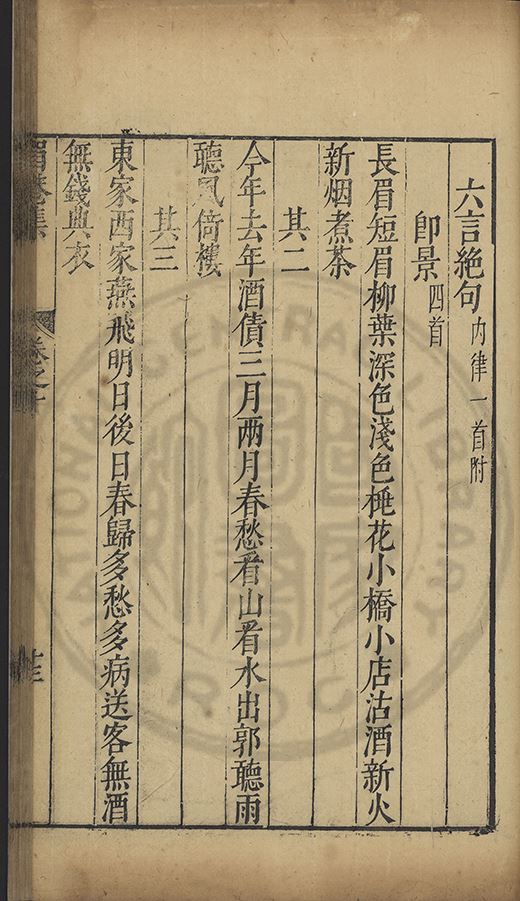 六言絶句內律一首附
即景四首
長眉短眉柳葉深色淺色桃花小橋小店沽酒新火
新烟煮茶
其二
今年去年酒債三月兩月春愁看山看水出郭聽雨
聽風倚樓
其三
東家西家燕飛明日後日春歸多愁多病送客無酒
無錢典衣
卷之十